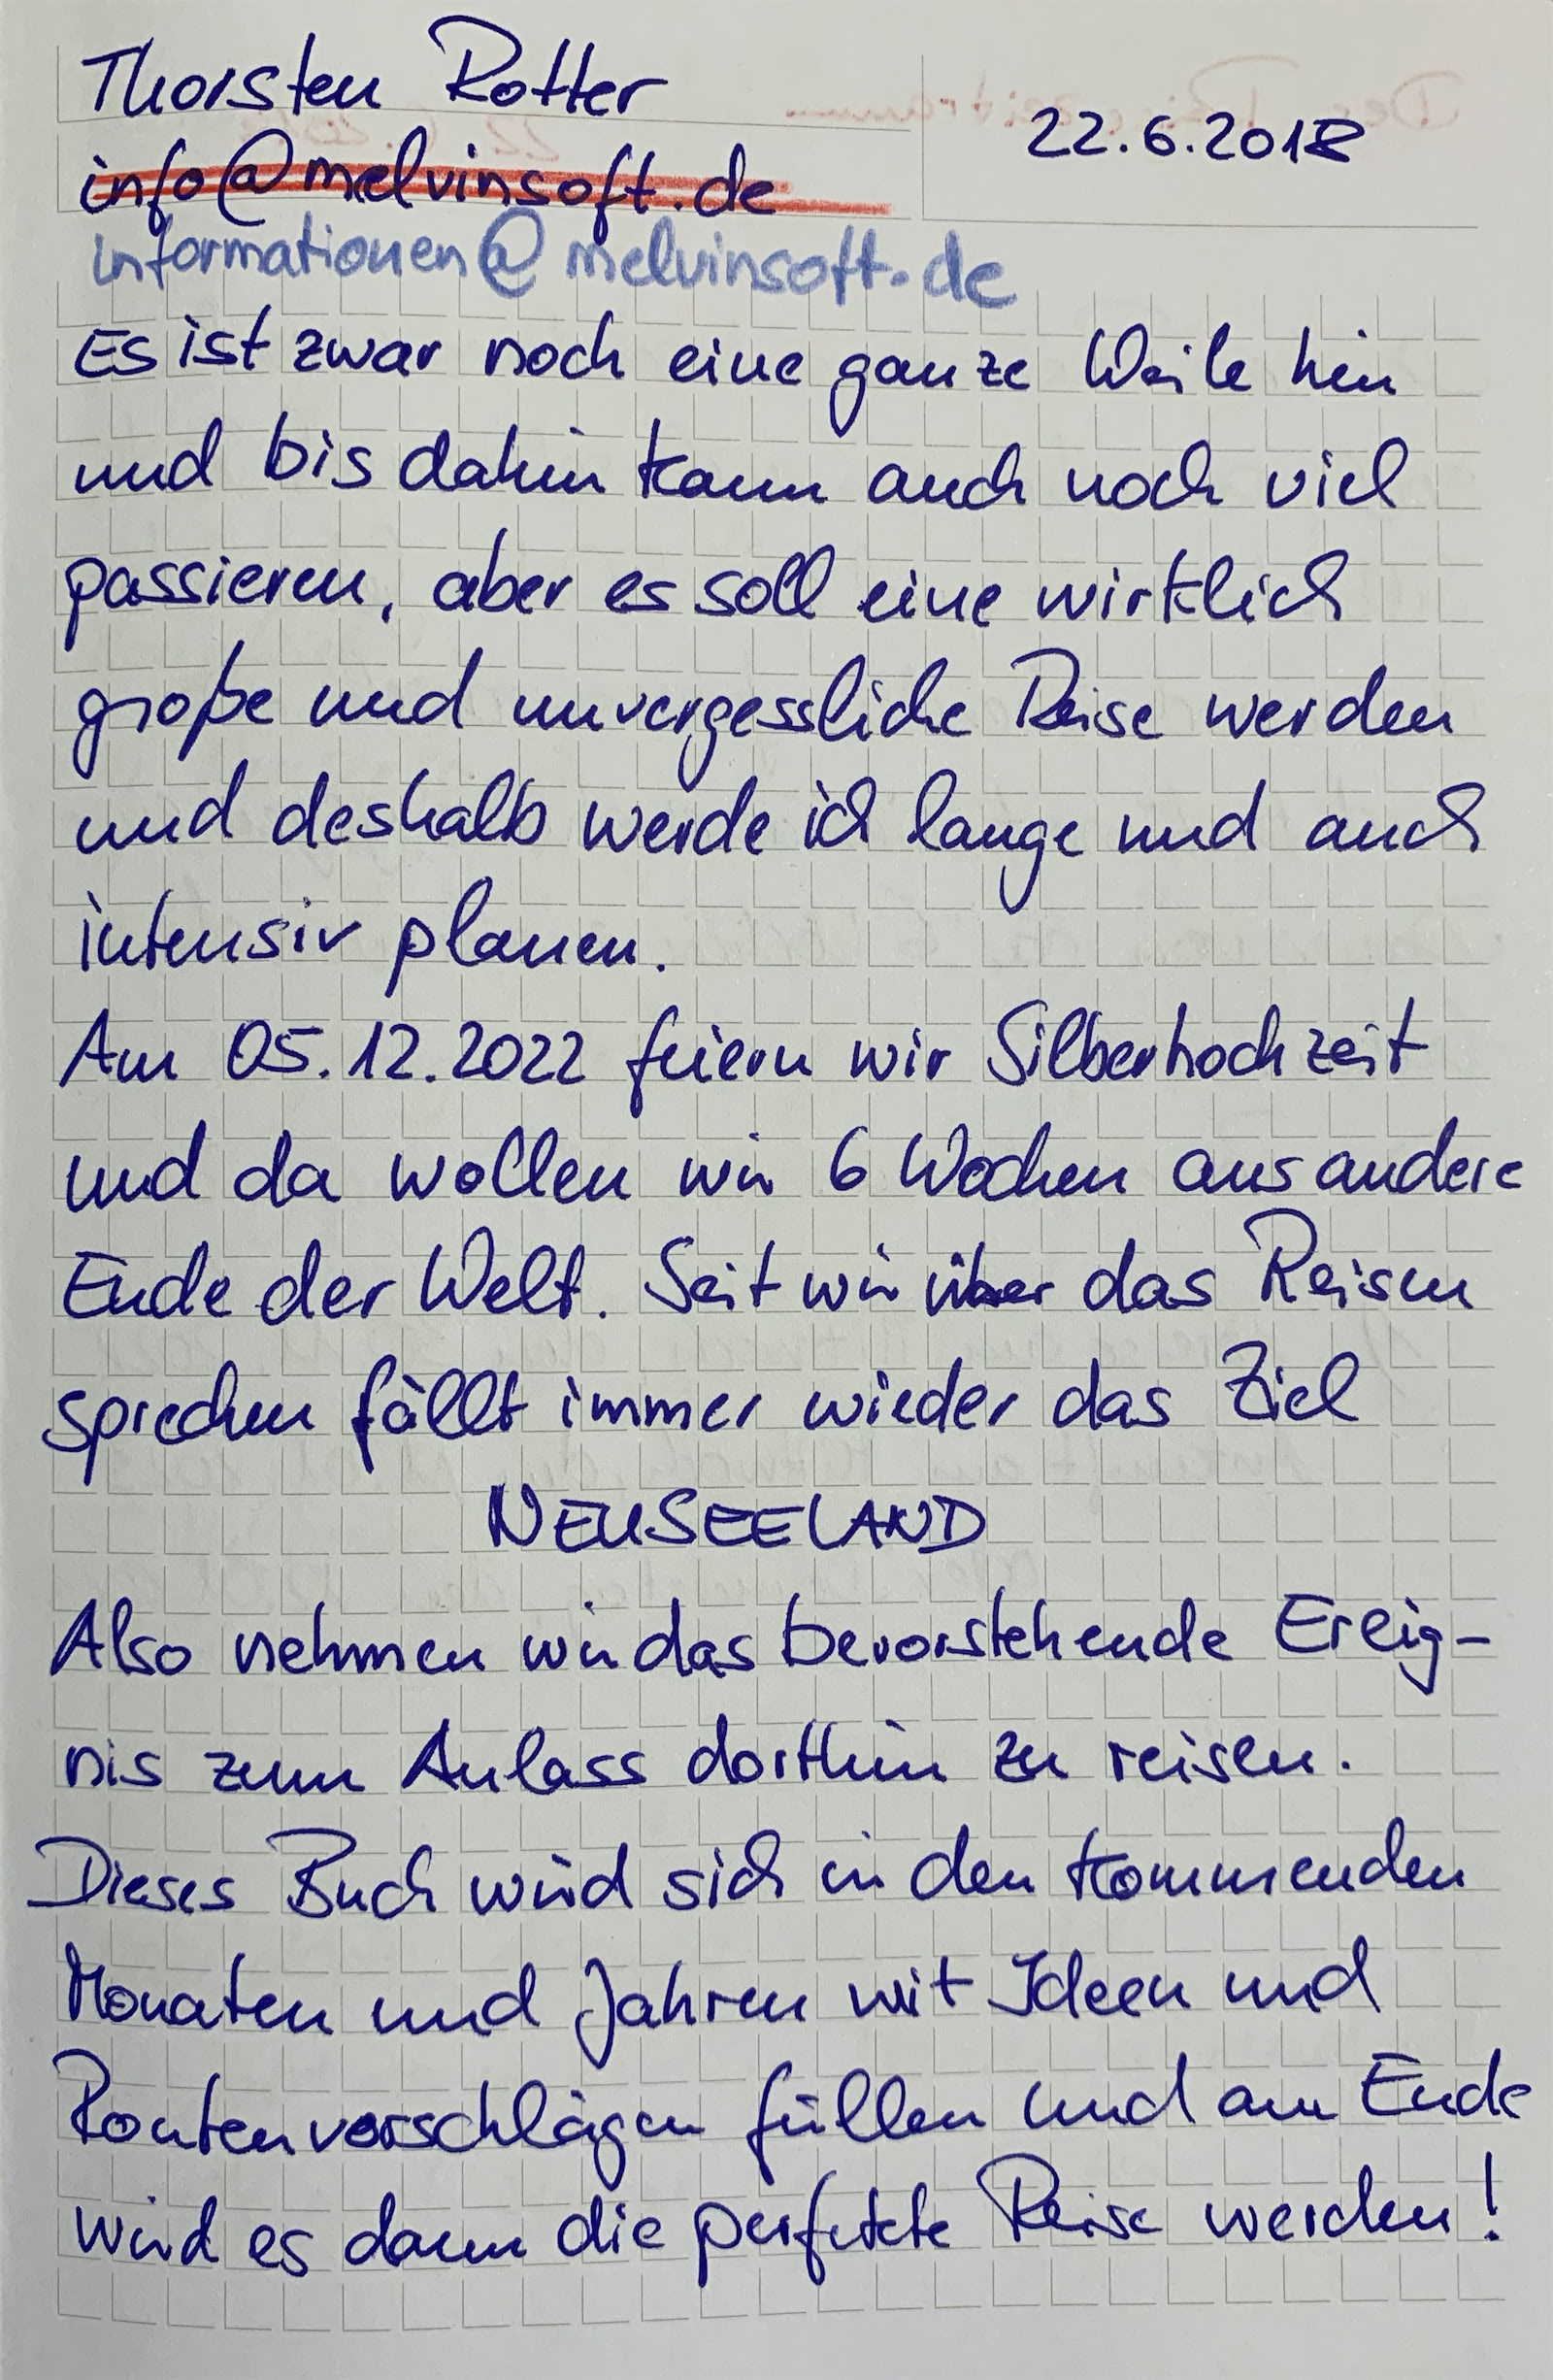 Thorsten Rotter
22.6.2018
info@melvinsoft.de
informationen@melvinsoft.de
Es ist zwar noch eine ganze Weile hin
und bis dahin kann auch noch viel
passieren, aber es soll eine wirklich
große und unvergessliche Reise werden
und deshalb werde ich lange und auch
intensiv planen.
Am 05.12.2022 feiern wir Silberhochzeit
und da wollen wir 6 Wochen ans andere
Ende der Welt. Seit wir über das Reisen
sprechen fällt immer wieder das Ziel
NEUSEELAND
Also nehmen wir das bevorstehende Ereig-
nis zum Anlass dorthin zu reisen.
Dieses Buch wird sich in den kommenden
Monaten und Jahren mit Ideen und
Routenvorschlägen füllen und am Ende
wird es dann die perfekte Reise werden!